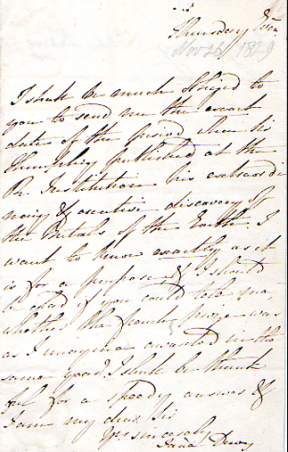 Thursday
Nov 26 1829
I shall be much obliged to
you to send me the exact
date of the period when Sir
Humphry published at the
Rl. Institution his extraordi
nary & decisive discovery of
the Metals of the Earths. I
want to know exactly as it
is for a purpose, & I should
be glad if you could tell me,
whether the french prize was
as I imagine awarded in the
same year? I shall be thank
ful for a speedy answer &
I am my dear Sir
Yrs sincerely
Jane Davy